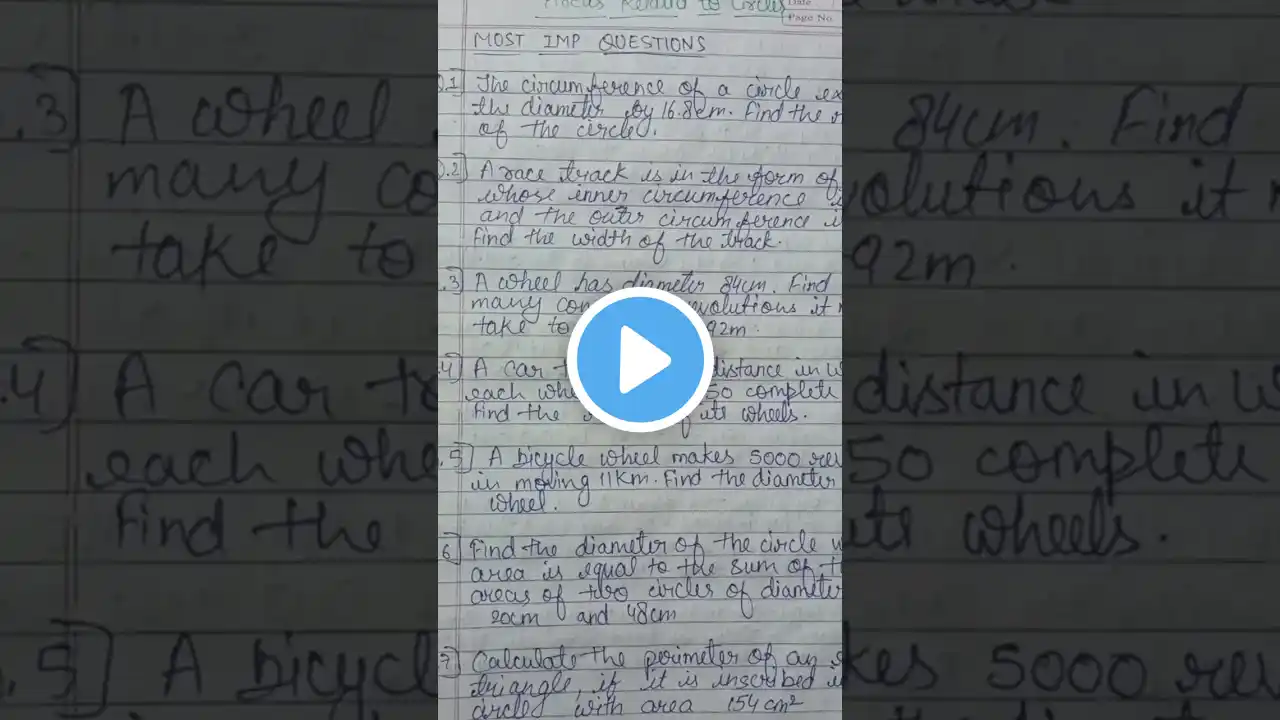 Areas Related to Circles
Date
Page No.
MOST IMP QUESTIONS
Q.1] The circumference of a circle ex
the diameter by 16.8cm. Find the
of the circle.
Q.2] A race track is in the form of
whose inner circumference
and the outer circumference i
Find the width of the track.
.3] A wheel has diameter 84cm. Find
many com revolutions it
take to 92m.
.4] A car t distance in w
each whe 50 complete
Find the of its wheels.
.5] A bicycle wheel makes 5000 rev
in moving 11Km. Find the diameter
wheel.
6] Find the diameter of the circle w
area is equal to the sum of t
areas of two circles of diameter
20cm and 48cm
7] Calculate the perimeter of an
triangle, if it is inscribed i
circle with area 154cm²
.3] A wheel 84cm. Find
many co volutions it
take to 92m.
.4] A car t distance in w
each whe 50 complete
Find the its wheels.
.5] A bicycl kes 5000 rev